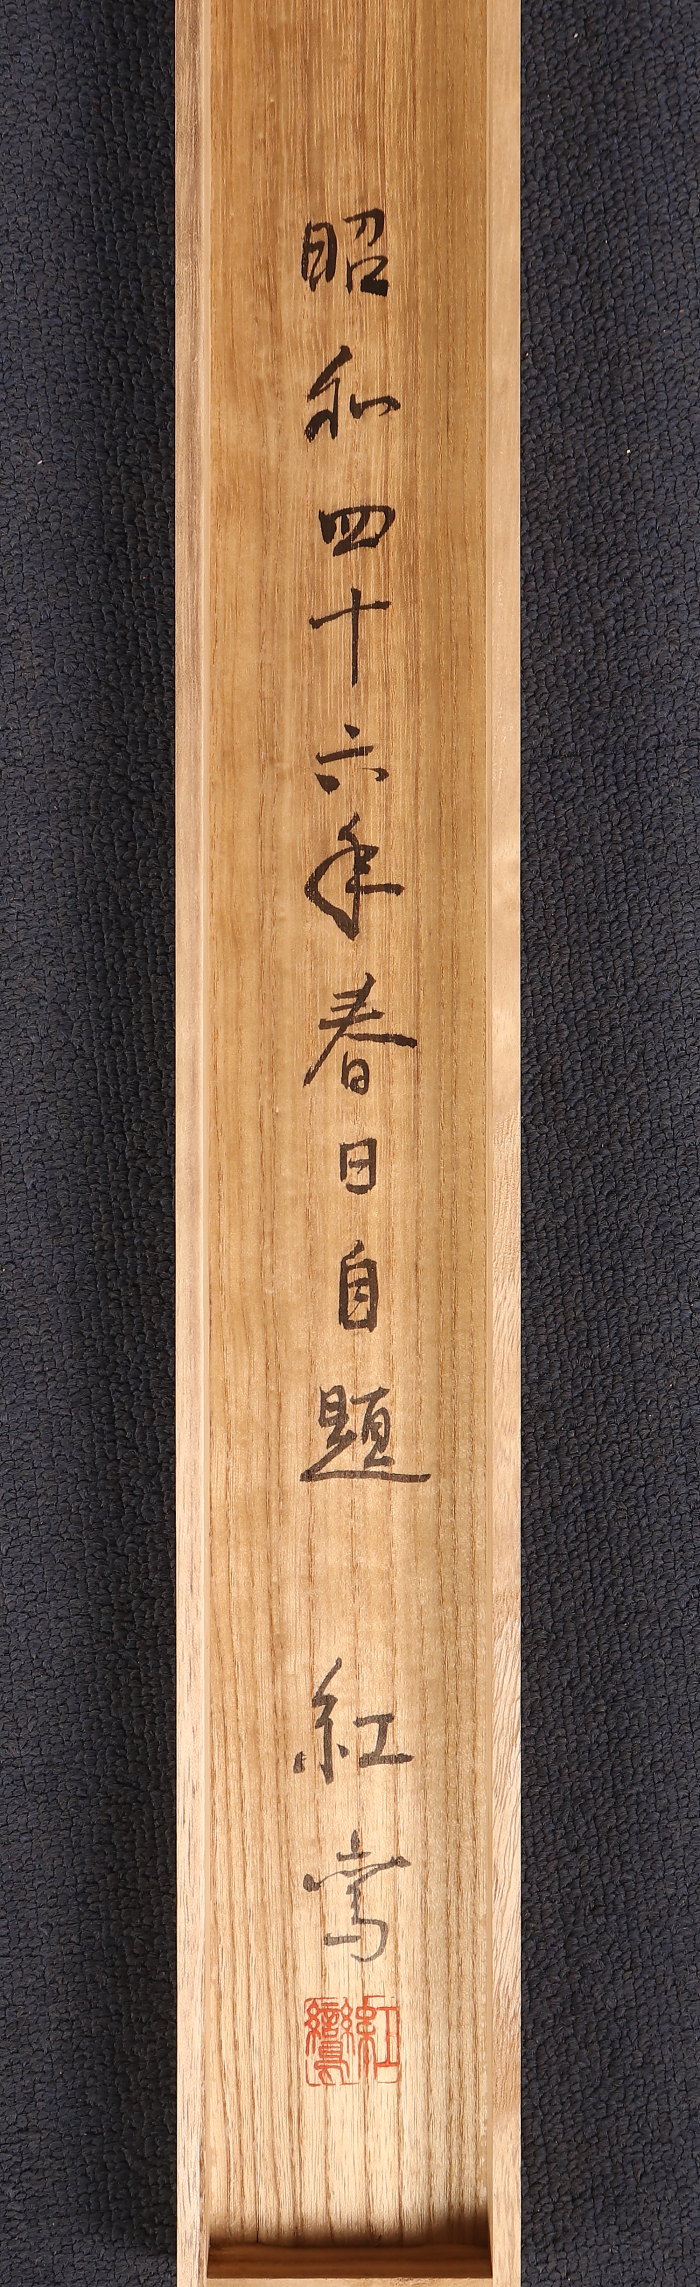 昭和四十六年春日自題 紅鸞
紅鸞